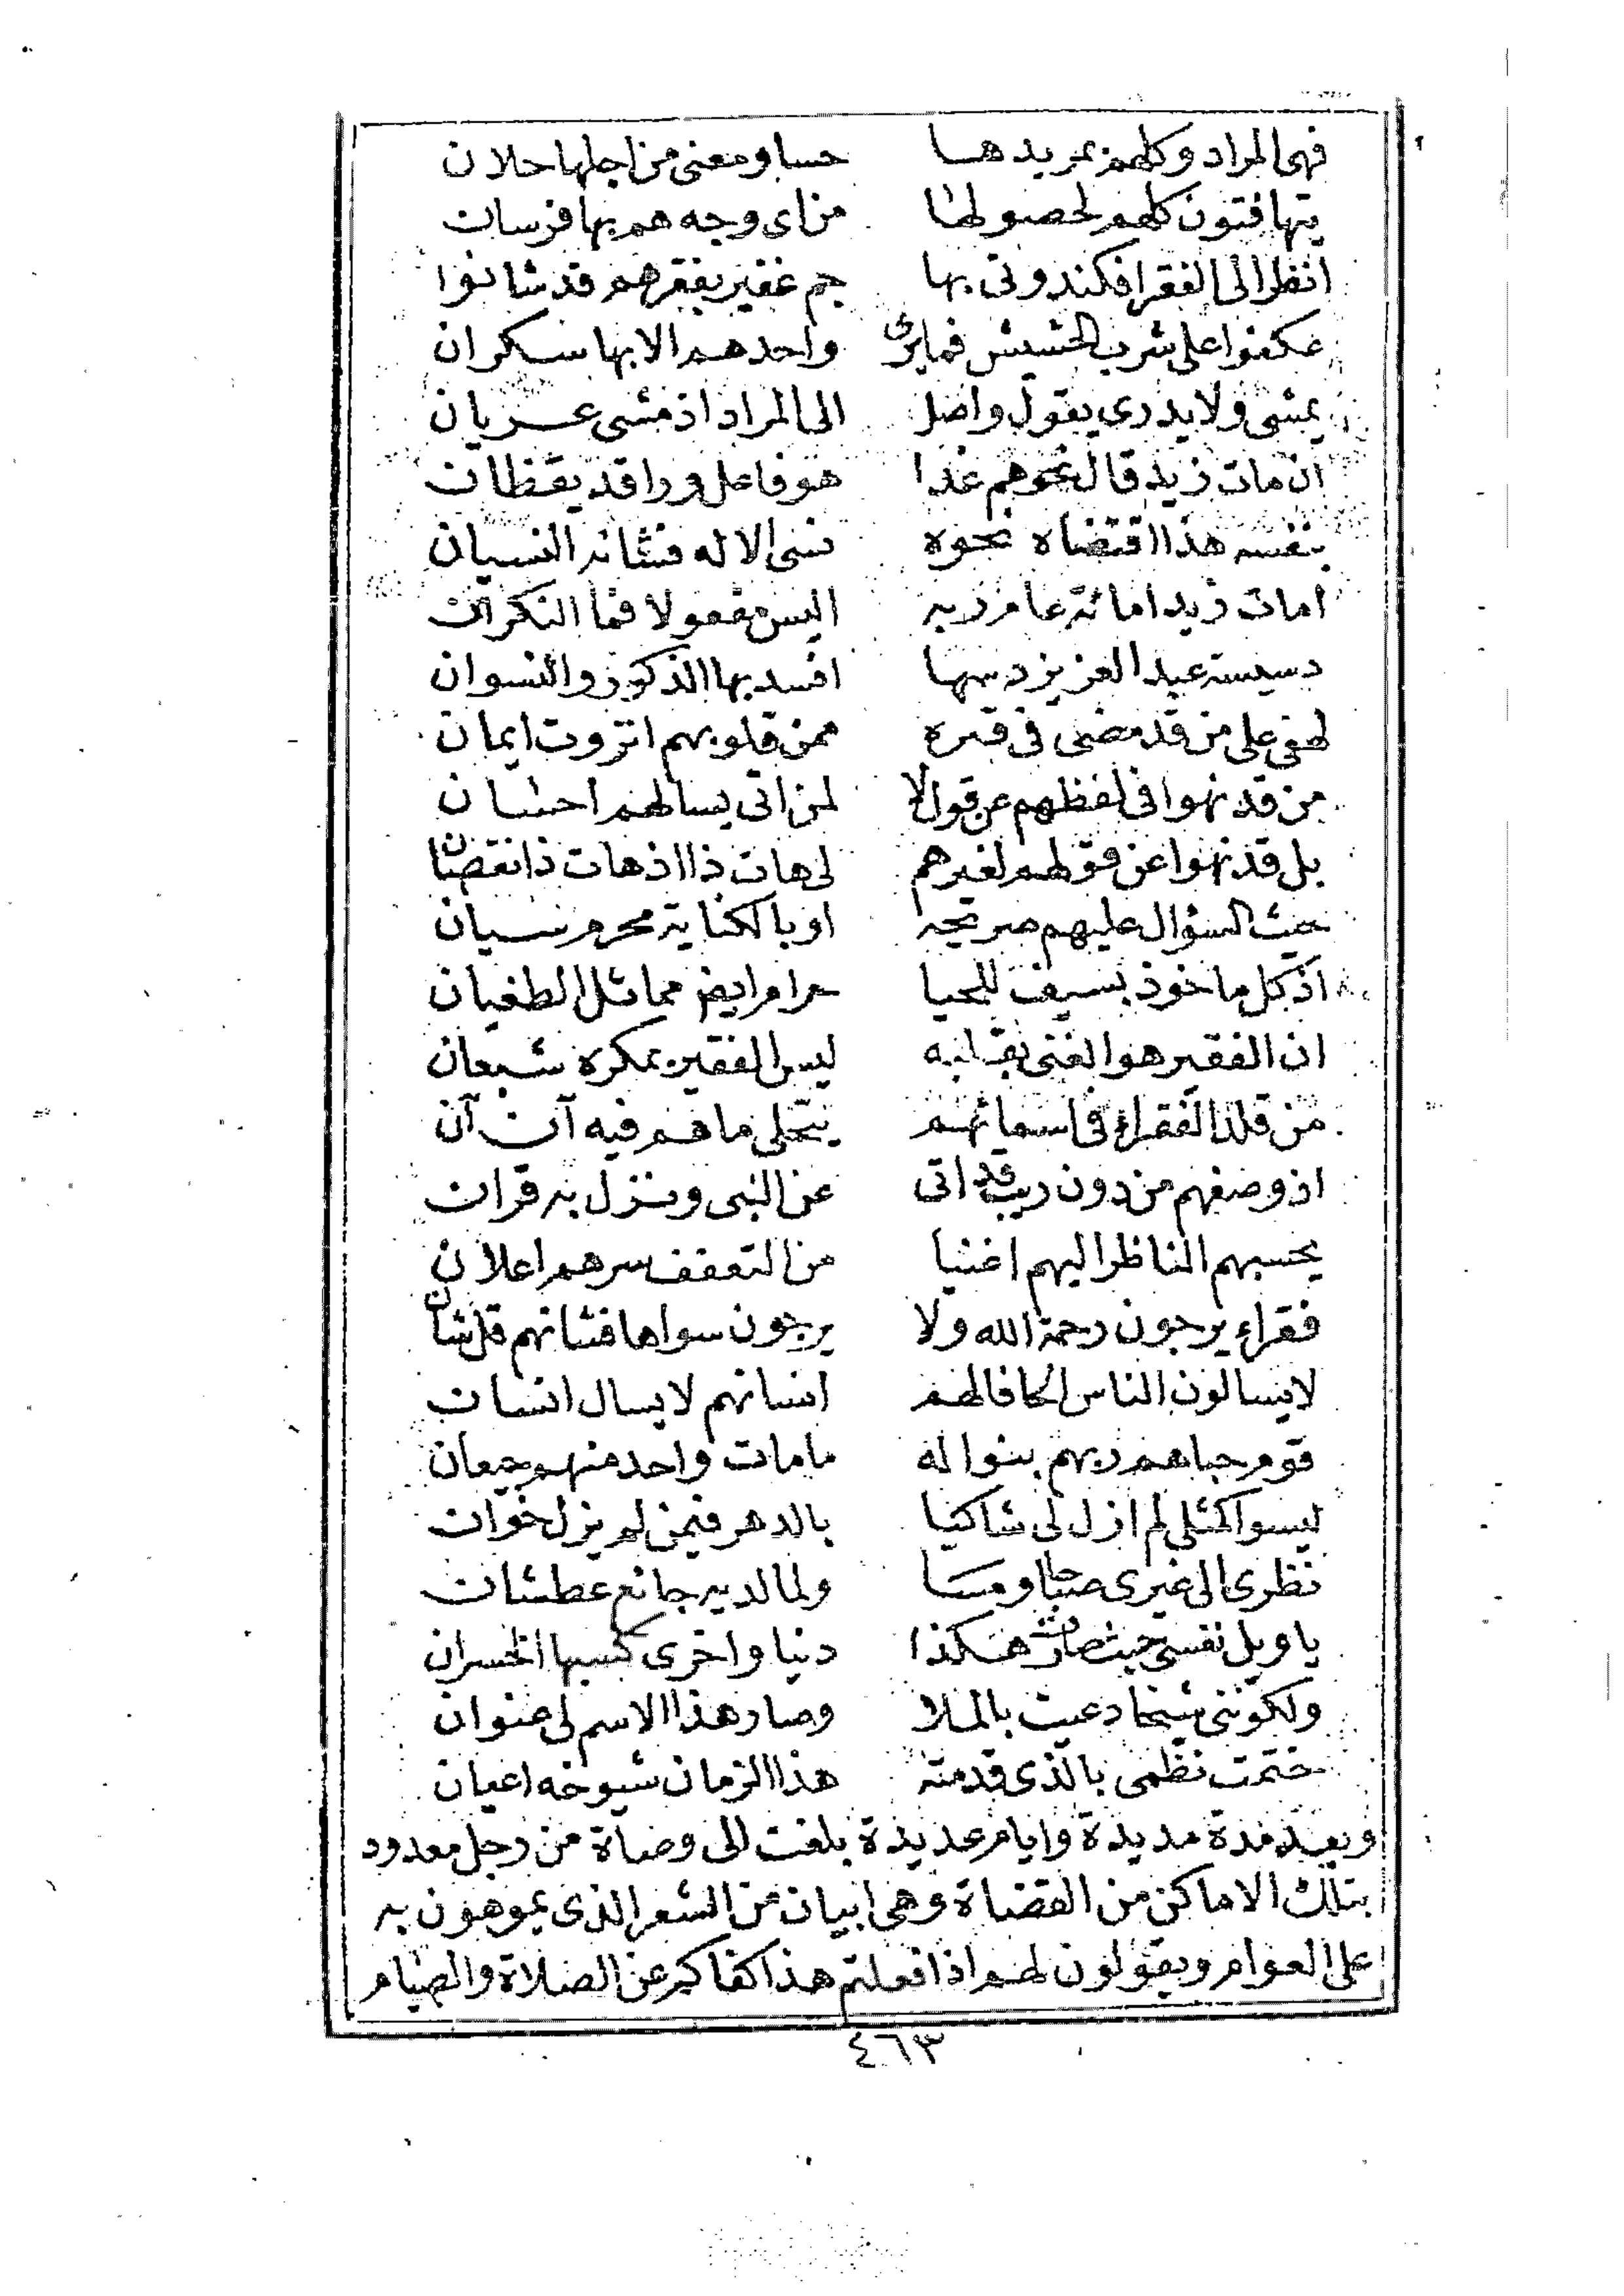 فهى المراد وكلهم بمريدها حسا ومعنى من اجلها حلان
يتهافتون كلهم لحصولها من اى وجه هم بها فرسان
انظر الى الفقرا فكندوتى بها جم غفير بفقرهم قد شانوا
عكفوا على شرب الحشيش فما يرى واحدهم الا بها سكران
يمشى ولا يدرى يقول واصل الى المراد اذ مشى عريان
ان مات زيد قال نحوهم غدا هو فاعل وراقد يقظان
بنفسه هذا اقتضاه نحوه نسى الاله فشانه النسيان
امات زيد امائة عام ربه اليس مفعولا فما النكران
دسيسة عبد العزيز دسها افسد بها الذكور والنسوان
لهفى على من قد مضى فى قبره ممن قلوبهم اتروت ايمان
من قد نهوا فى لفظهم عن قول لا لمن اتى يسالهم احسان
بل قد نهوا عن قولهم لغيرهم لى هات ذا اذ هات ذا نقصان
حيث السؤال عليهم صريحه او بالكناية محرم سيان
اذ كل ماخوذ بسيف للحيا حرام ايضا مماثل الطغيان
ان الفقير هو الغنى بقلبه ليس الفقير بمكره شبعان
من قلد الفقراء فى اسمائهم يتحلى ما هم فيه آن آن
اذ وصفهم من دون ريب قد اتى عن النبى ونزل به قران
يحسبهم الناظر اليهم اغنيا من التعفف سرهم اعلان
فقراء يرجون رحمة الله ولا يرجون سواها فشانهم قل شان
لا يسالون الناس الحافا لهم انسانهم لا يسال انسان
قوم حباهم ربهم بنواله ما مات واحد منهم جيعان
ليسوا كمثلى لم ازل لى شاكيا بالدهر فيمن لم يزل خوان
نظرى الى غيرى صباحا ومسا ولما لديه جائع عطشان
يا ويل نفسى حيث صارت هكذا دنيا واخرى كسبها الخسران
ولكوننى شيخا دعيت بالملا وصار هذا الاسم لى عنوان
ختمت نظمى بالذى قدمته هذا الزمان شيوخه اعيان
وبعد مدة مديدة وايام عديدة بلغت الى وضاة من رجل معدود
بتلك الاماكن من القضاة وهى ابيات من الشعر الذى يموهون به
على العوام ويقولون لهم اذا فعلتم هذا كفاكم عن الصلاة والصيام
٤٦٣